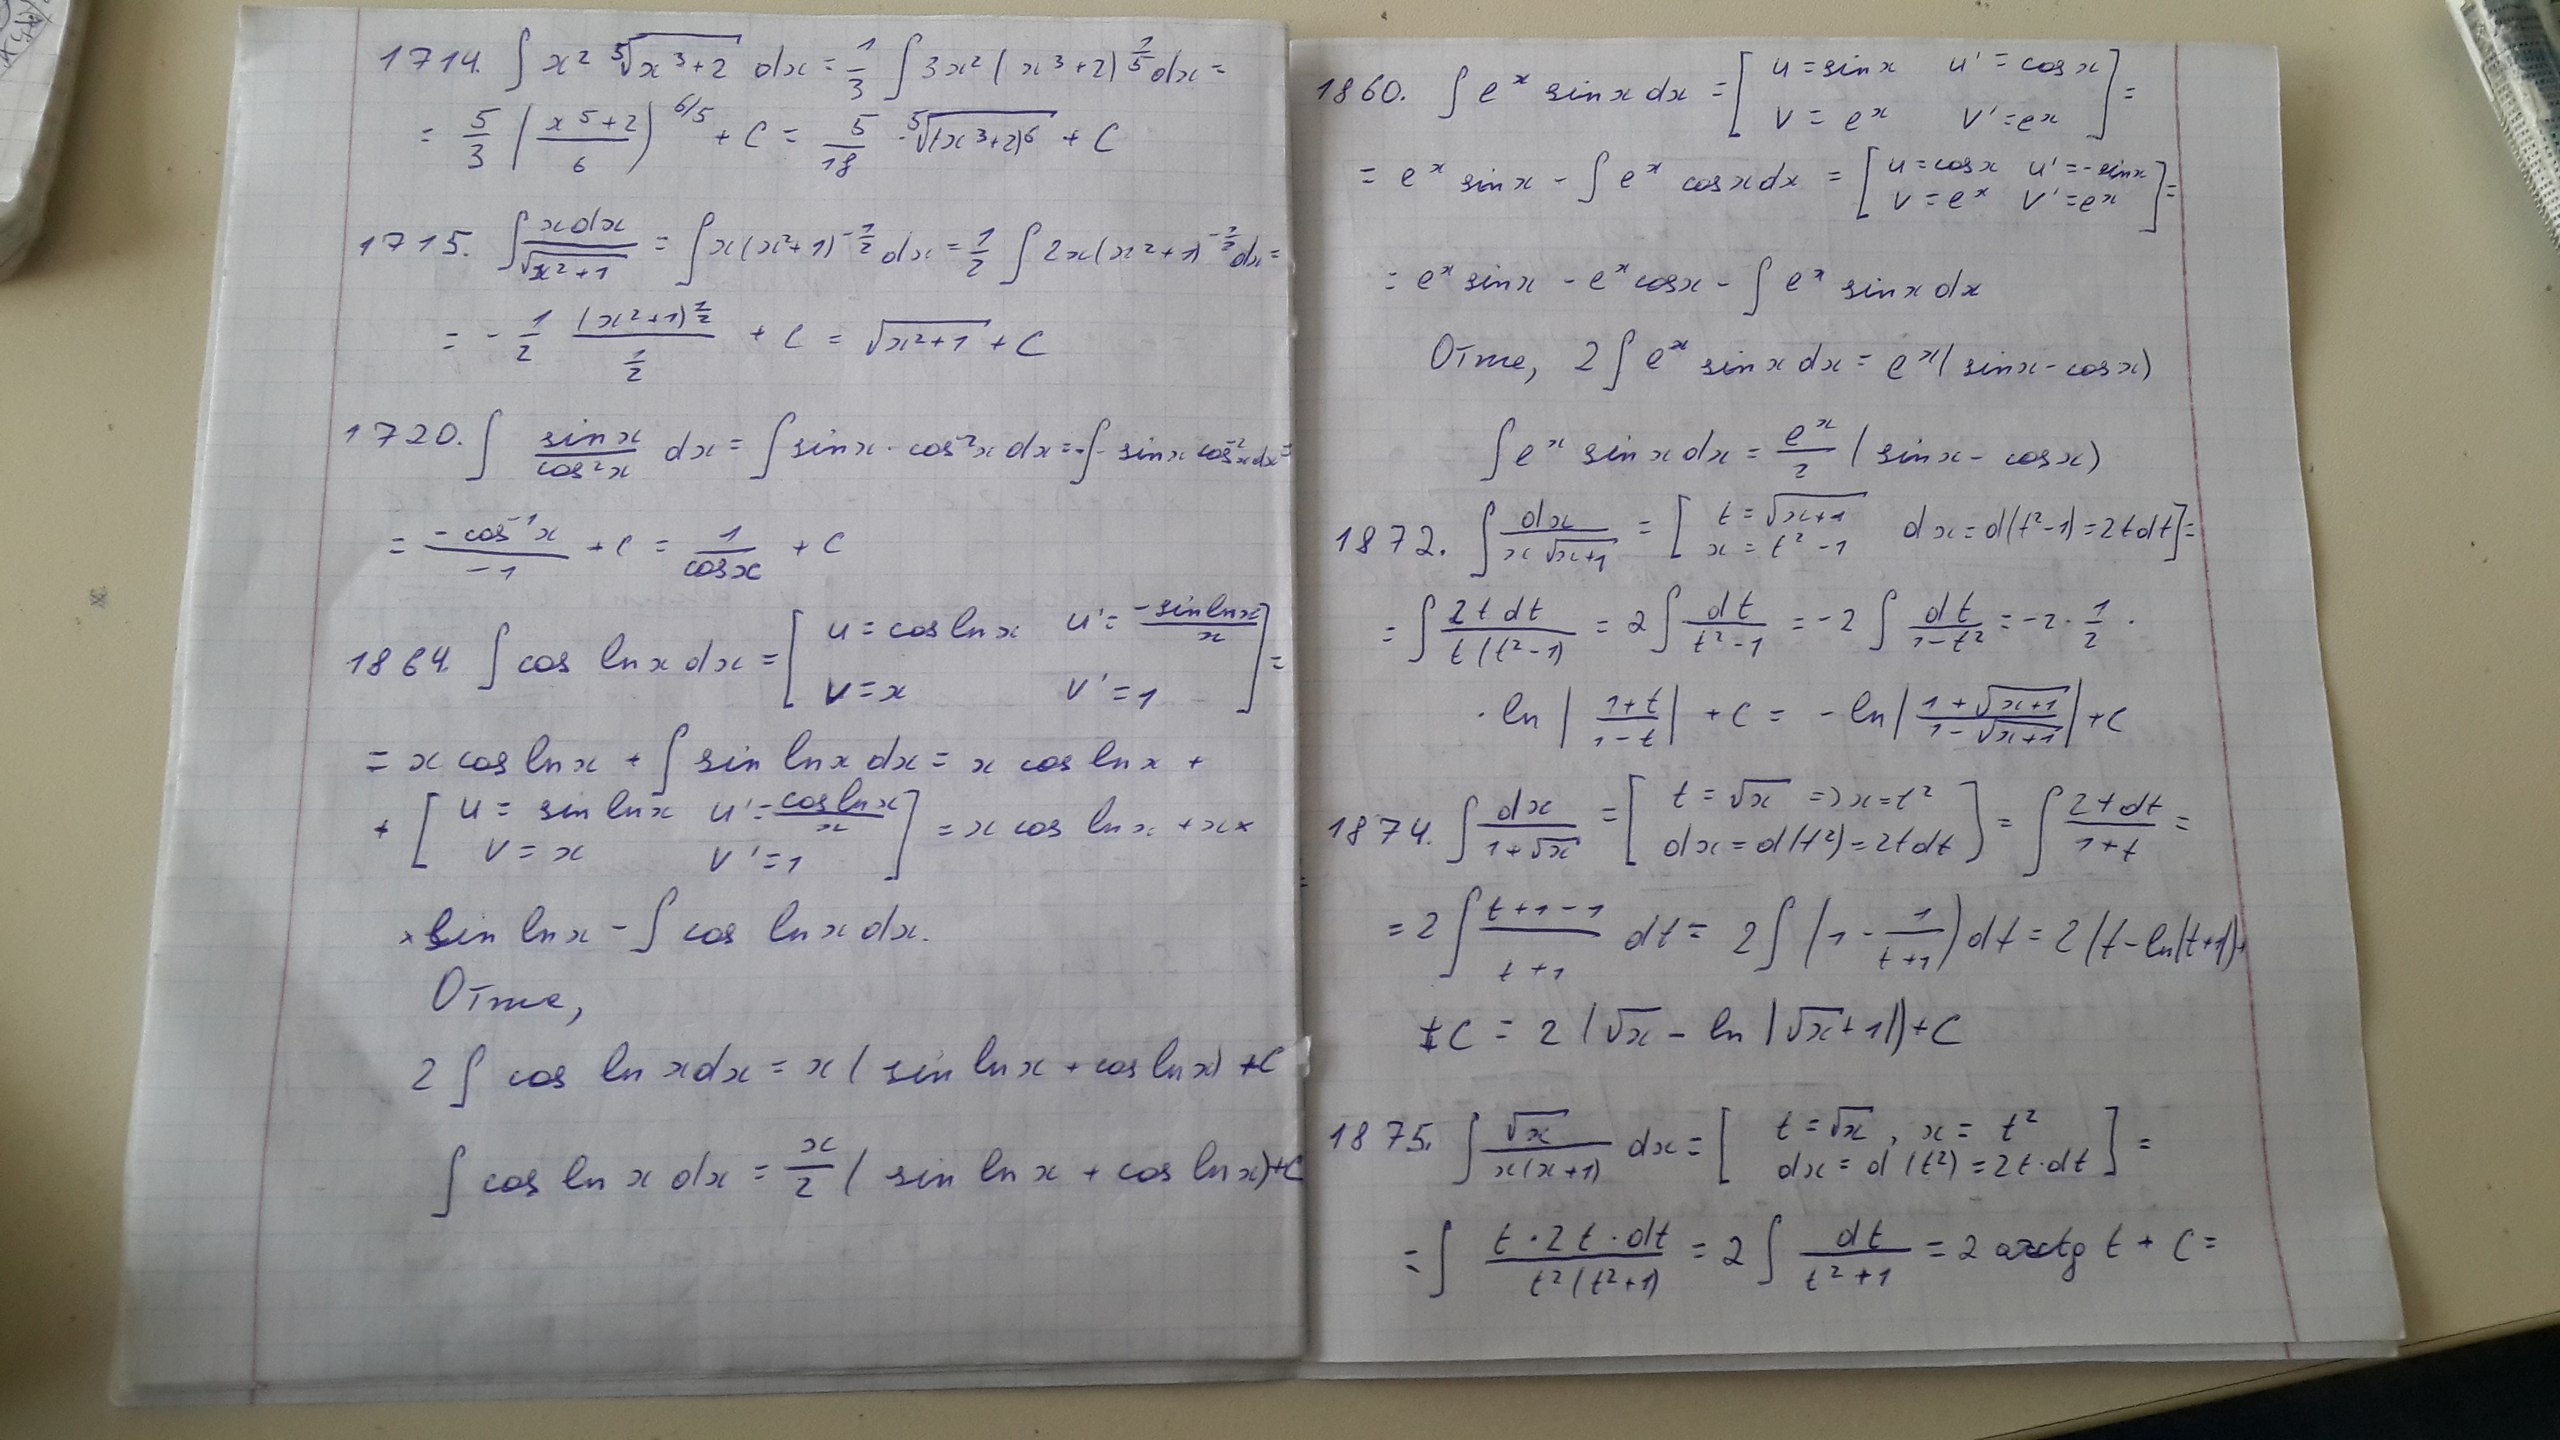 1714. ∫ x² ⁵√(x³+2) dx = 1/3 ∫ 3x² (x³+2)^(1/5) dx =
= 5/3 ((x⁵+2)/6)^(6/5) + C = 5/18 · ⁵√((x³+2)⁶) + C
1715. ∫ xdx/√(x²+1) = ∫ x(x²+1)^(-1/2) dx = 1/2 ∫ 2x(x²+1)^(-1/2) dx =
= - 1/2 (x²+1)^(1/2)/(1/2) + C = √(x²+1) + C
1720. ∫ sinx/cos²x dx = ∫ sinx · cos⁻²x dx = -∫ - sinx cos⁻²x dx =
= -cos⁻¹x/-1 + C = 1/cosx + C
1864. ∫ cos lnx dx = [u = cos lnx u' = -sinlnx/x v = x v' = 1] =
= x cos lnx + ∫ sin lnx dx = x cos lnx +
+ [u = sin lnx u' = coslnx/x v = x v' = 1] = x cos lnx + x ×
× sin lnx - ∫ cos lnx dx.
Отже,
2 ∫ cos ln x dx = x ( sin lnx + cos lnx) + C
∫ cos ln x dx = x/2 ( sin ln x + cos lnx) + C
1860. ∫ eˣ sinx dx = [u = sinx u' = cosx v = eˣ v' = eˣ] =
= eˣ sinx - ∫ eˣ cosxdx = [u = cosx u' = -sinx v = eˣ v' = eˣ] =
= eˣ sinx - eˣ cosx - ∫ eˣ sinx dx
Отже, 2 ∫ eˣ sinx dx = eˣ( sinx - cosx)
∫ eˣ sinx dx = eˣ/2 ( sinx - cosx)
1872. ∫ dx/(x√(x+1)) = [t = √(x+1) x = t² - 1 dx = d(t²-1) = 2tdt] =
= ∫ 2t dt/(t(t²-1)) = 2 ∫ dt/(t²-1) = -2 ∫ dt/(1-t²) = -2 · 1/2 ·
· ln |(1+t)/(1-t)| + C = - ln |(1+√(x+1))/(1-√(x+1))| + C
1874. ∫ dx/(1+√x) = [t = √x => x = t² dx = d(t²) = 2tdt] = ∫ 2tdt/(1+t) =
= 2 ∫ (t+1-1)/(t+1) dt = 2 ∫ (1 - 1/(t+1)) dt = 2 (t - ln|t+1|) +
+ C = 2 (√x - ln |√x + 1|) + C
1875. ∫ √x/(x(x+1)) dx = [t = √x, x = t² dx = d (t²) = 2t·dt] =
= ∫ t · 2t · dt/(t²(t²+1)) = 2 ∫ dt/(t²+1) = 2 arctg t + C =